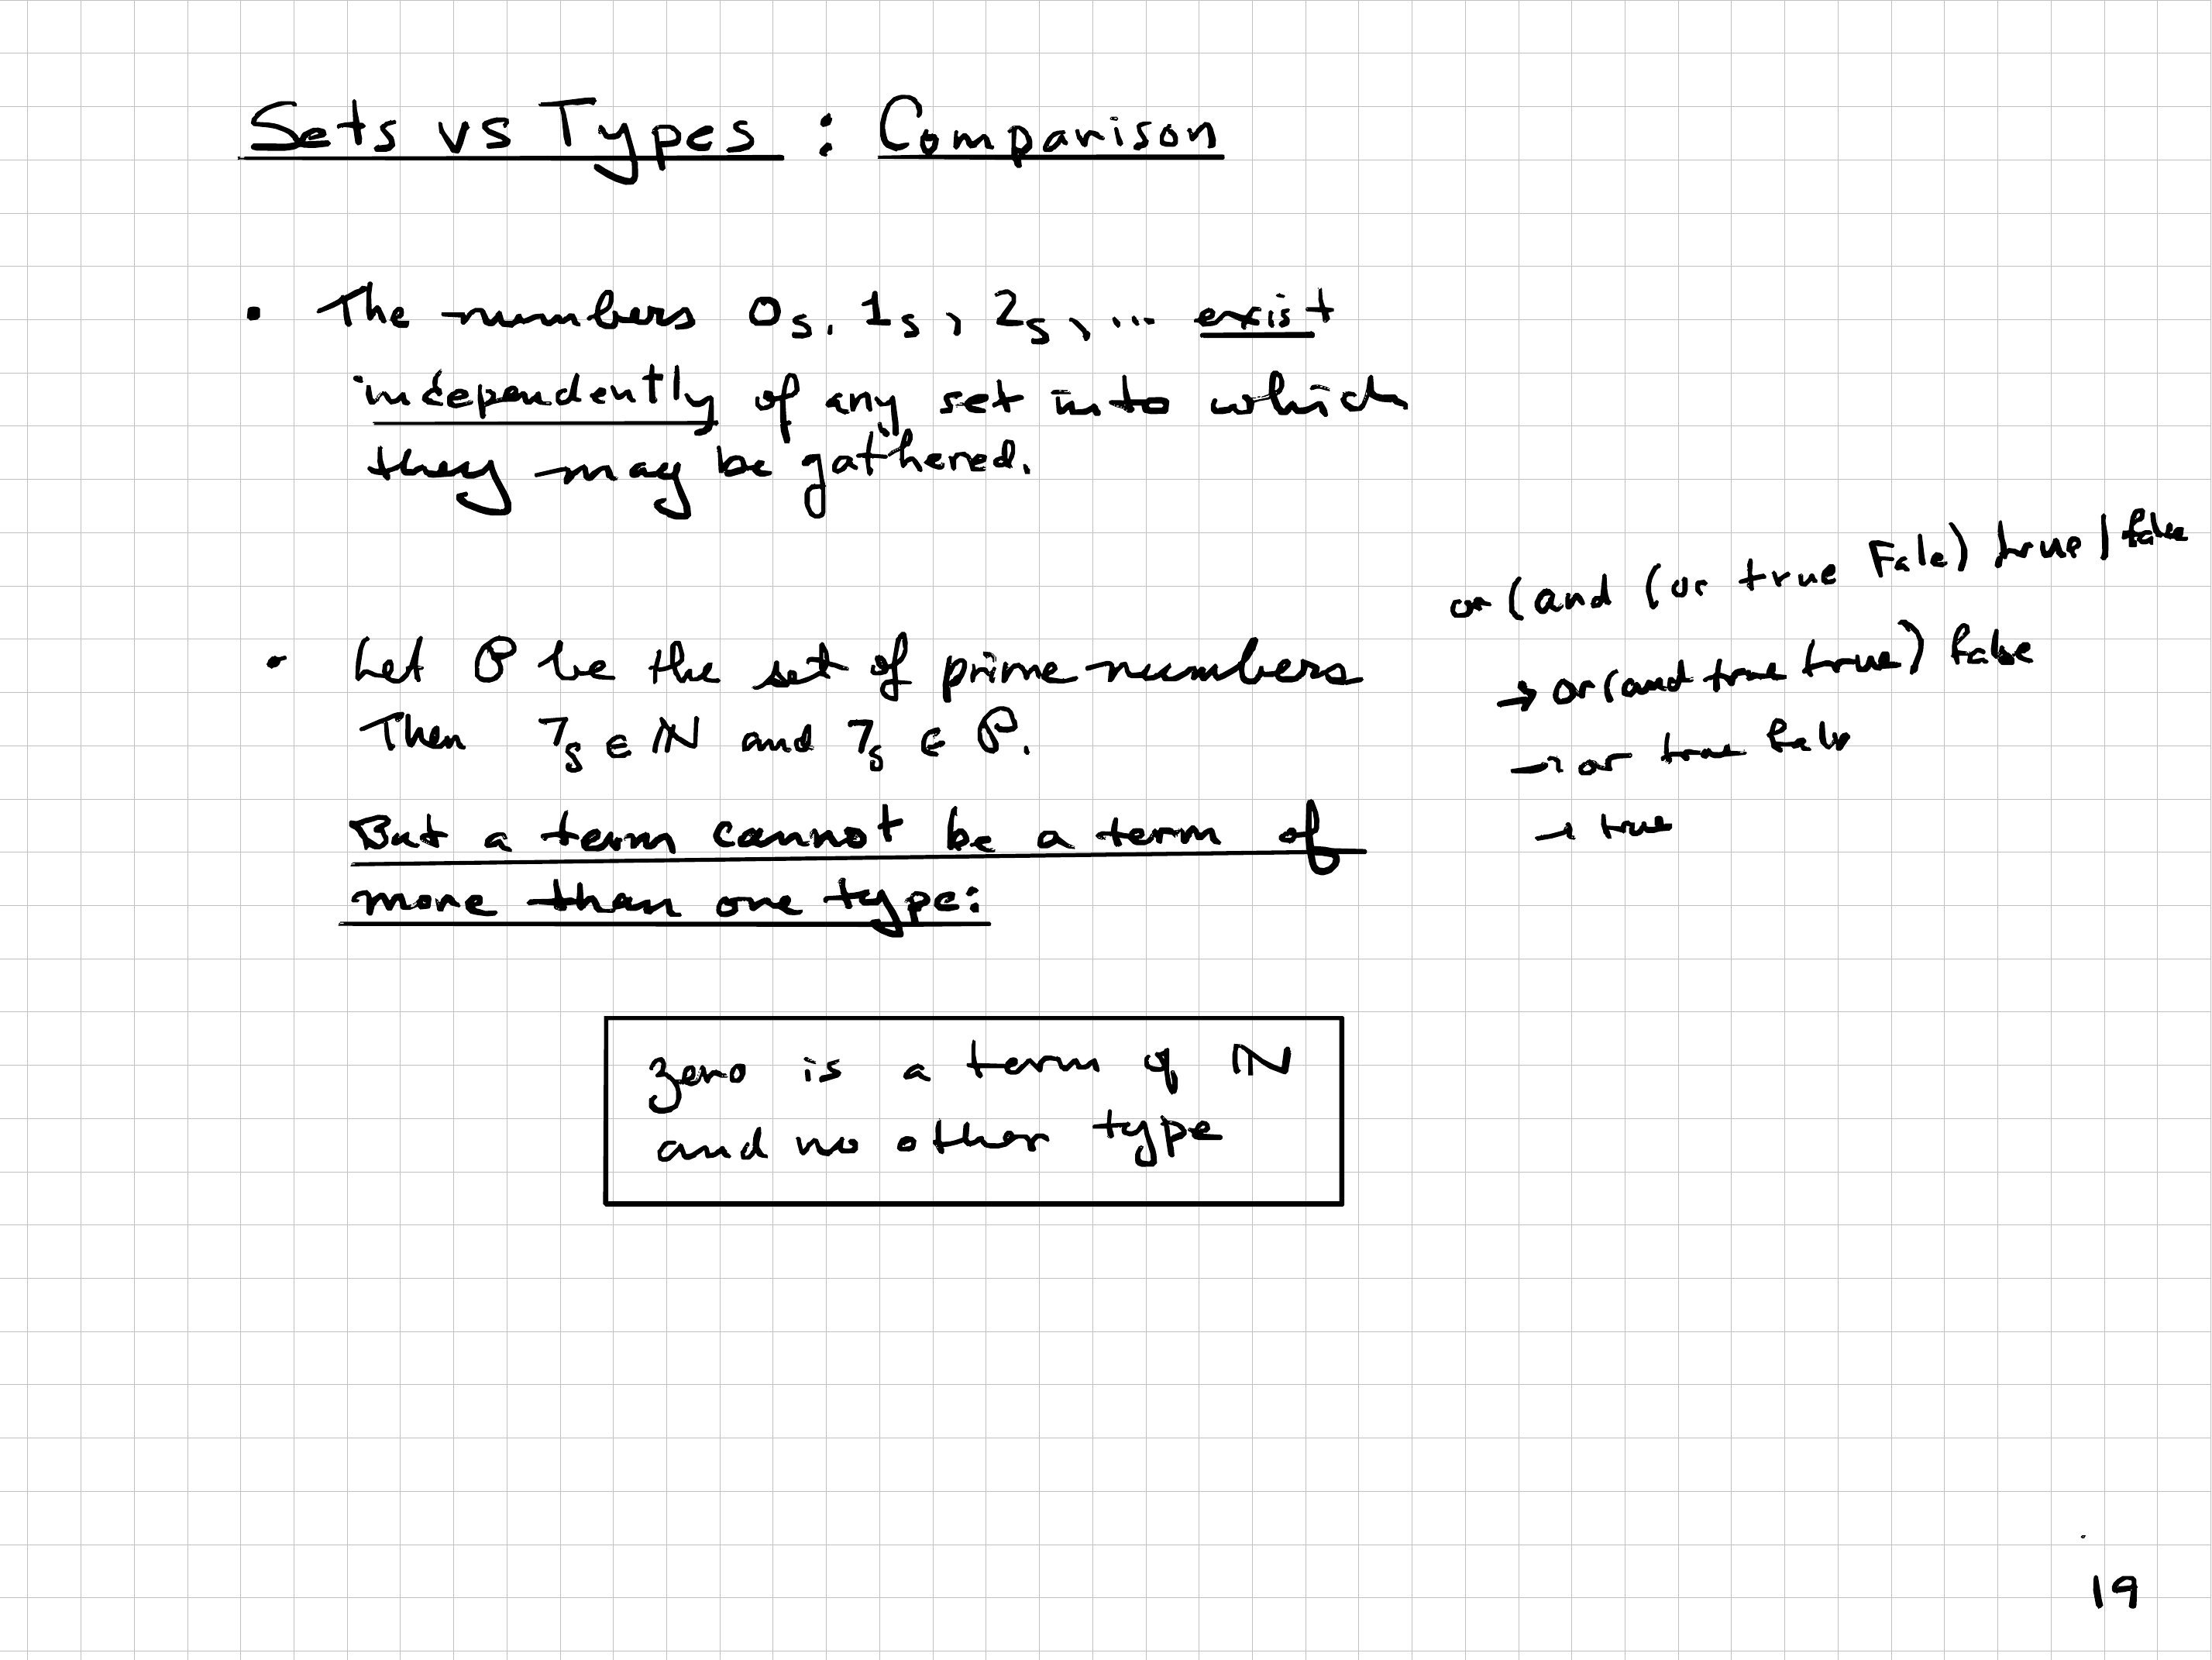 Sets vs Types : Comparison
• The numbers 0s, 1s, 2s, ... exist
independently of any set into which
they may be gathered.
• Let P be the set of prime numbers
Then 7s ∈ ℕ and 7s ∈ P.
But a term cannot be a term of
more than one type:
zero is a term of ℕ
and no other type
or (and (or true Fale) true) false
→ or (and true true) false
→ or true fals
→ true
19